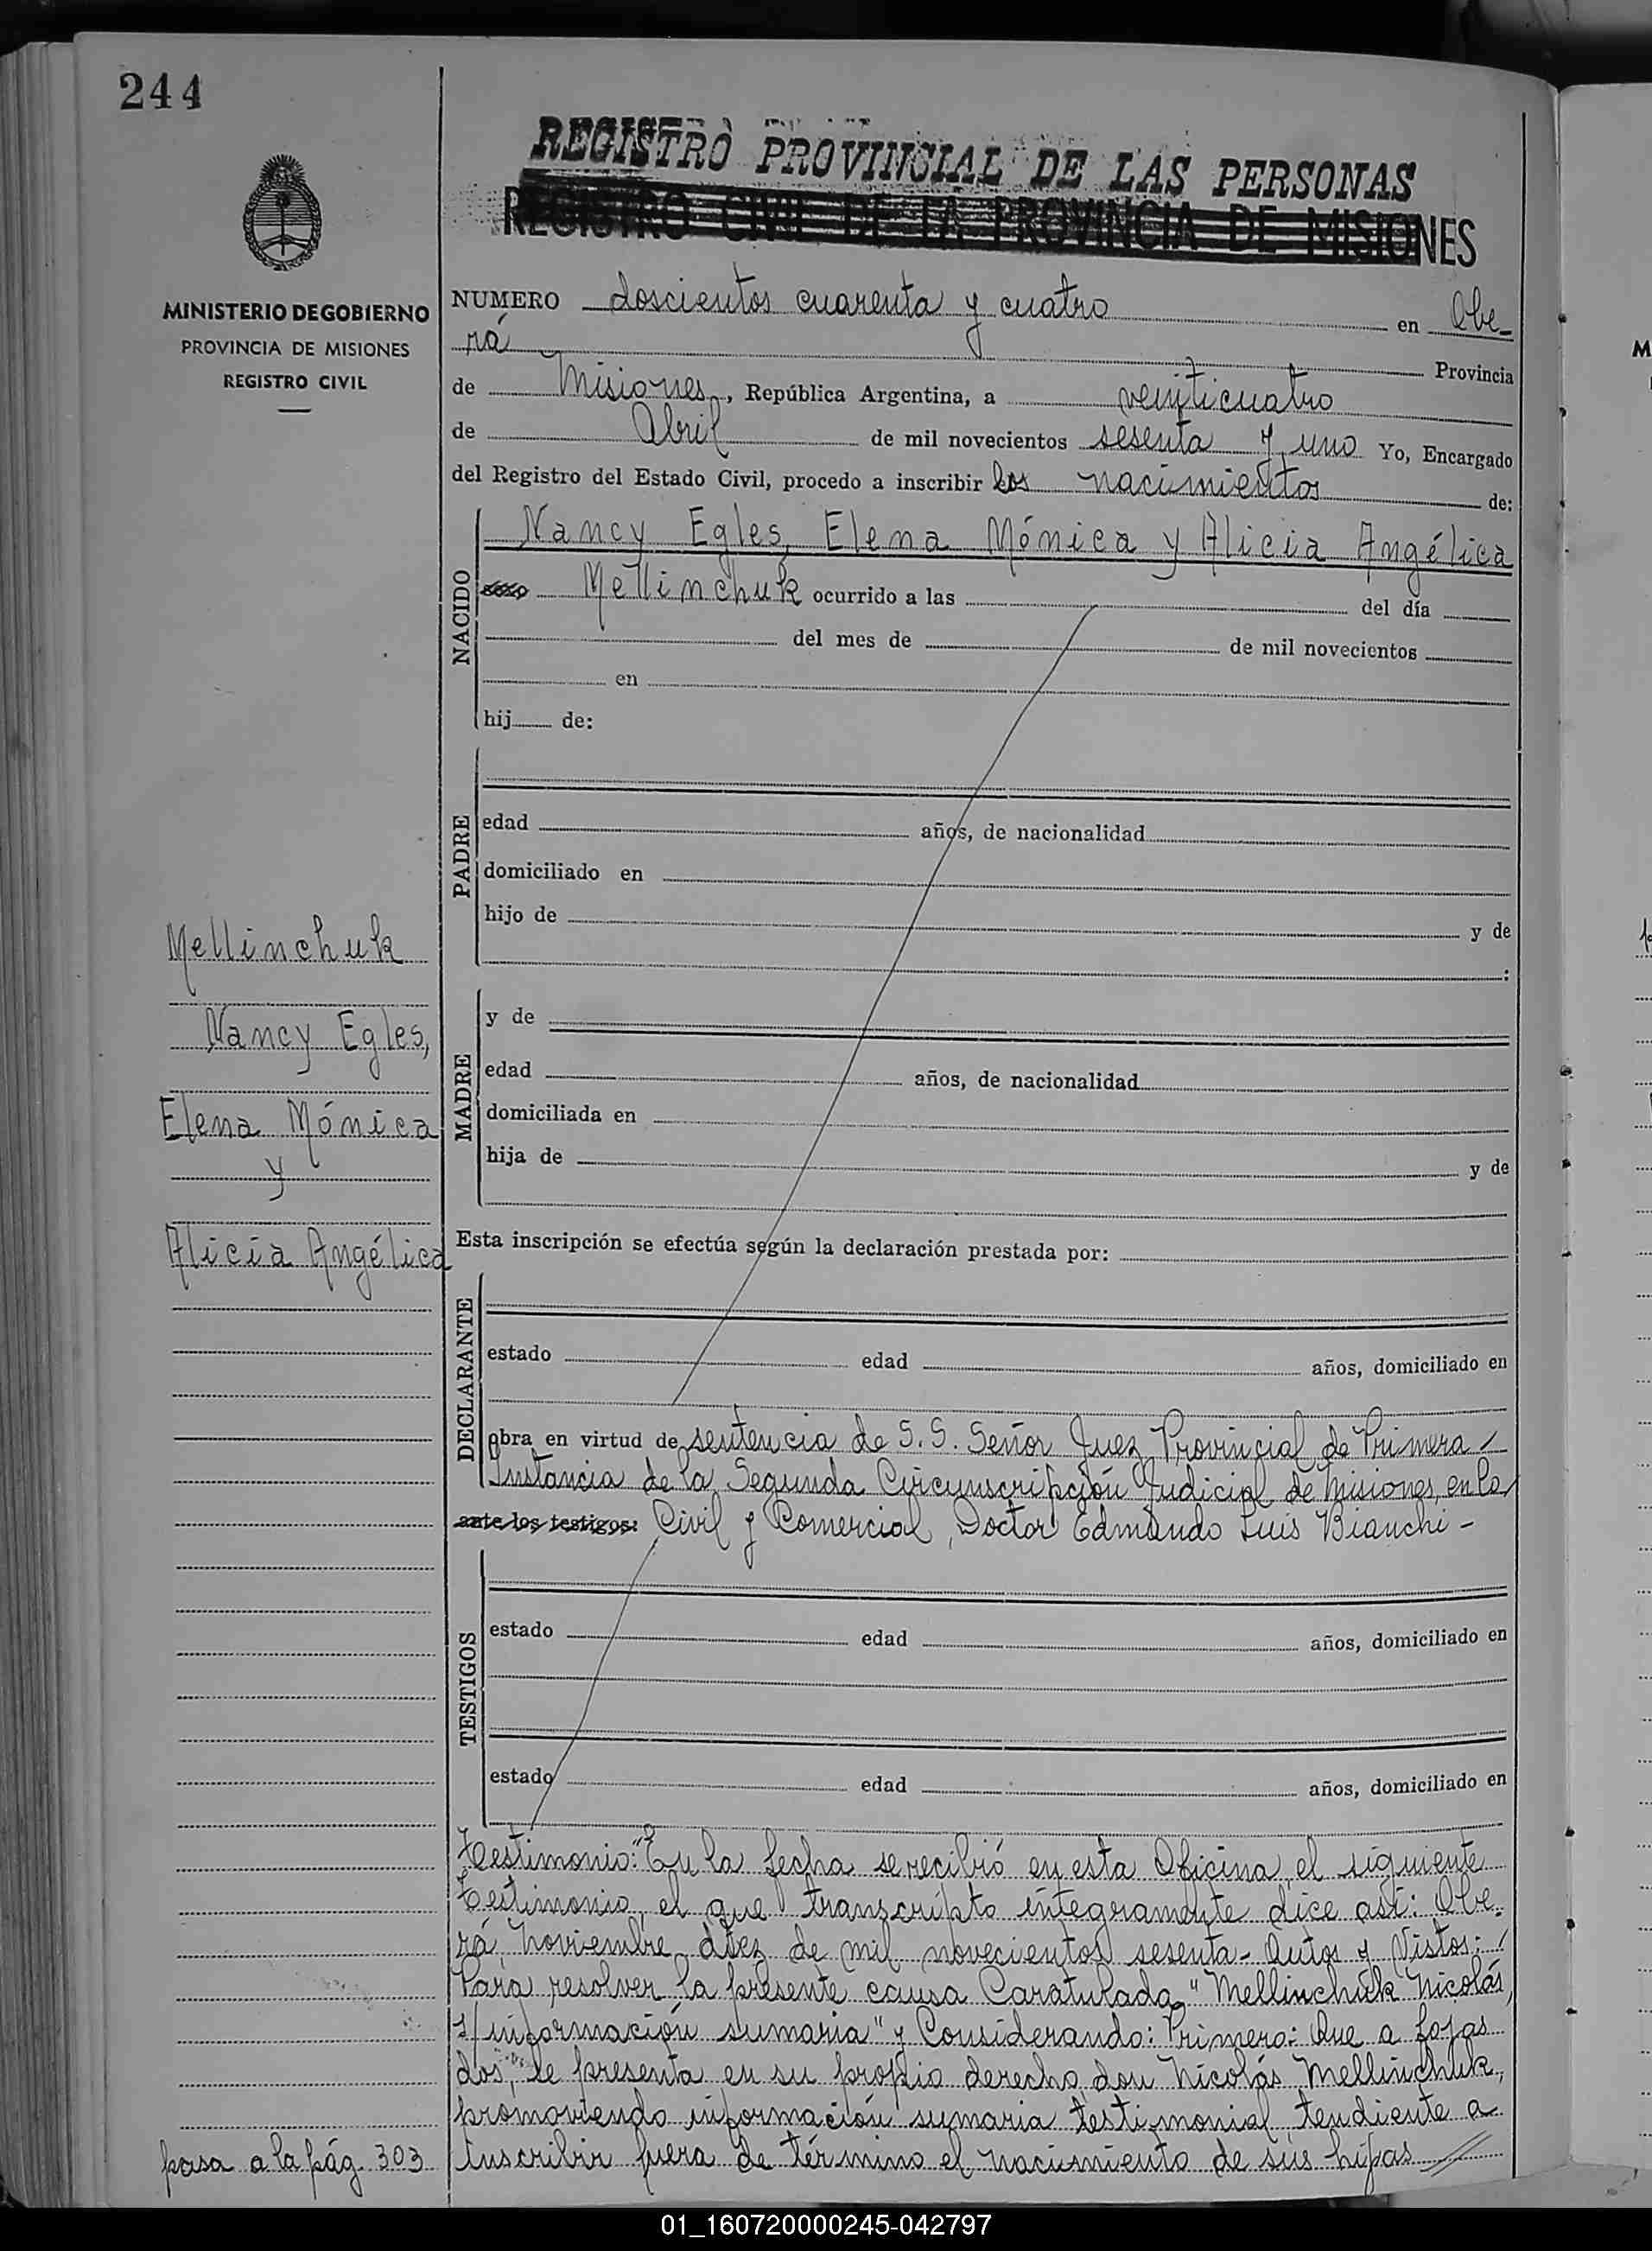 244
REGISTRO PROVINCIAL DE LAS PERSONAS
REGISTRO CIVIL DE LA PROVINCIA DE MISIONES
MINISTERIO DE GOBIERNO
PROVINCIA DE MISIONES
REGISTRO CIVIL
NUMERO doscientos cuarenta y cuatro en Obe-
rá Provincia
de Misiones, República Argentina, a veinticuatro
de Abril de mil novecientos sesenta y uno Yo, Encargado
del Registro del Estado Civil, procedo a inscribir los nacimientos de:
NACIDO
Nancy Egles, Elena Mónica y Alicia Angélica
sexo Mellinchuk ocurrido a las del día
del mes de de mil novecientos
en
hij de:
PADRE
edad años, de nacionalidad
domiciliado en
hijo de y de
:
Mellinchuk
Nancy Egles,
Elena Mónica
y
Alicia Angélica
MADRE
y de
edad años, de nacionalidad
domiciliada en
hija de y de
Esta inscripción se efectúa según la declaración prestada por:
DECLARANTE
estado edad años, domiciliado en
obra en virtud de sentencia de S. S. Señor Juez Provincial de Primera
Instancia de la Segunda Circunscripción Judicial de Misiones, en lo
ante los testigos: Civil y Comercial, Doctor Edmundo Luis Bianchi -
TESTIGOS
estado edad años, domiciliado en
estado edad años, domiciliado en
Testimonio: "En la fecha se recibió en esta Oficina el siguiente
testimonio, el que transcripto íntegramente dice así: Obe-
rá, Noviembre diez de mil novecientos sesenta - Autos y Vistos: /
Para resolver la presente causa Caratulada "Mellinchuk Nicolás,
s/ información sumaria" y Considerando: Primero: Que a fojas
dos, se presenta en su propio derecho don Nicolás Mellinchuk,
promoviendo información sumaria testimonial tendiente a
inscribir fuera de término el nacimiento de sus hijas //
pasa a la pág. 303
01_160720000245-042797